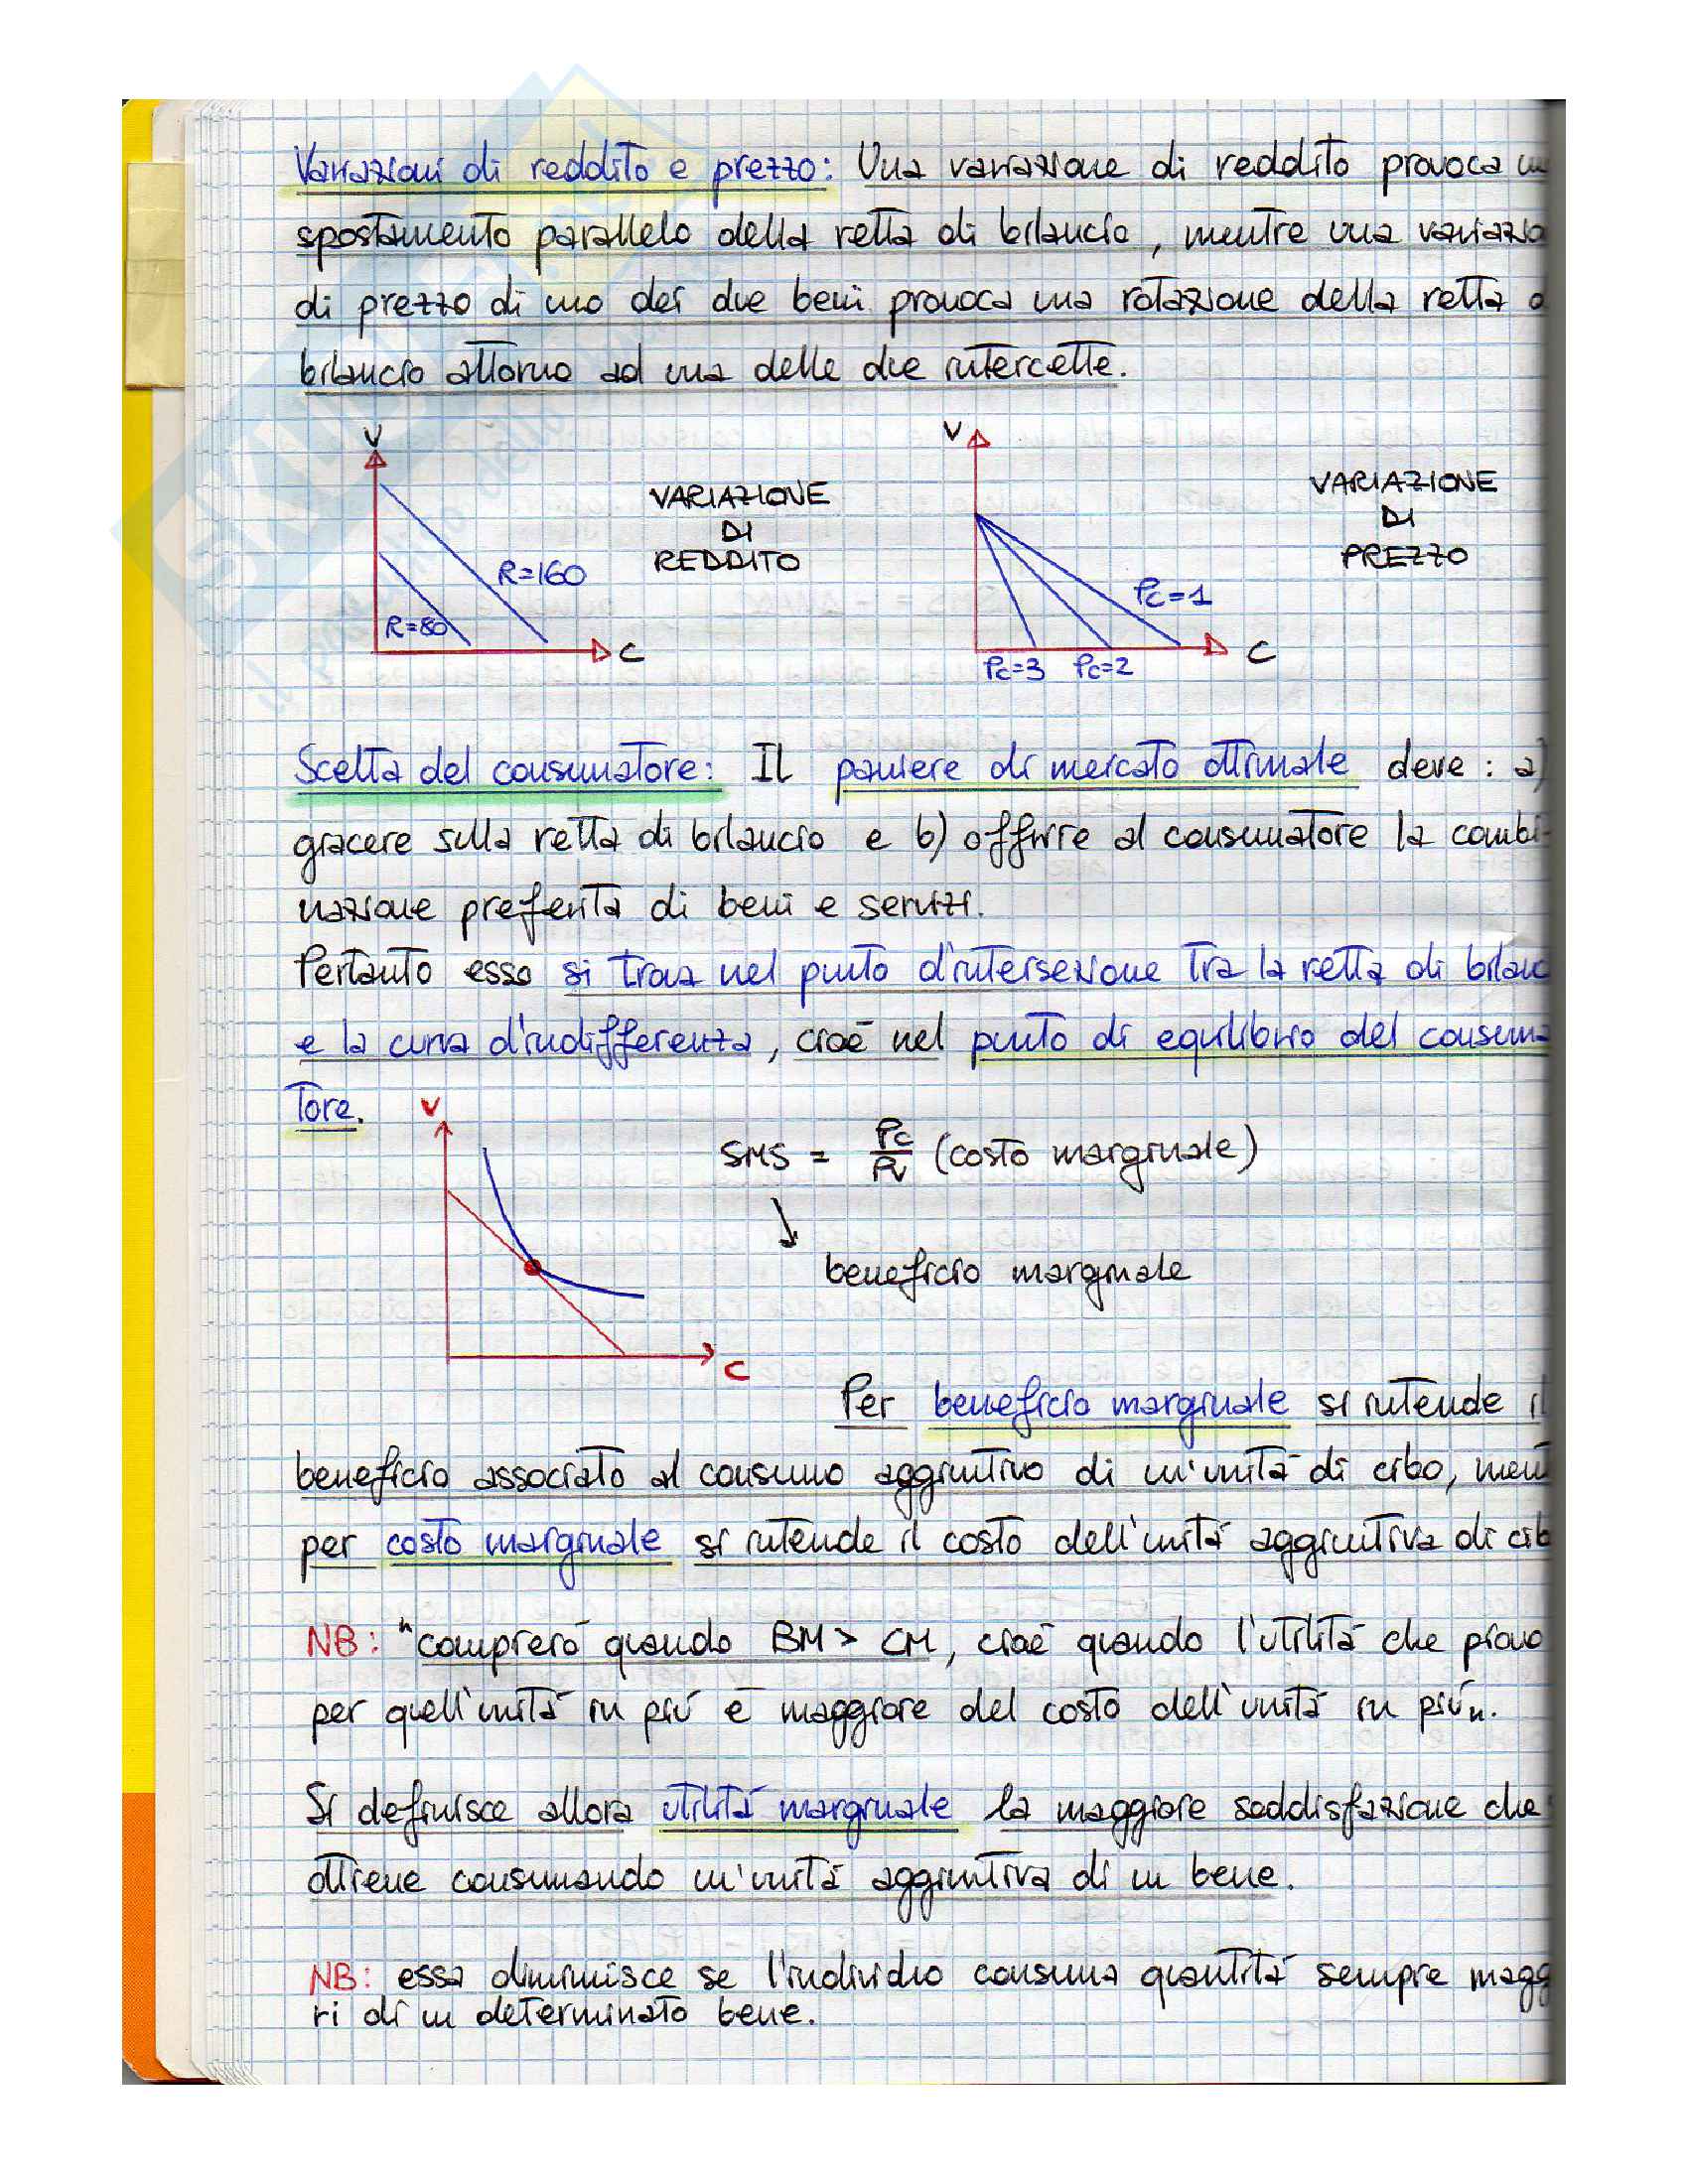 Variazioni di reddito e prezzo: Una variazione di reddito provoca un
spostamento parallelo della retta di bilancio, mentre una variazio
di prezzo di uno dei due beni provoca una rotazione della retta d
bilancio attorno ad una delle due intercette.
V
R=160
R=80
C
VARIAZIONE
DI
REDDITO
V
Pc=1
Pc=3 Pc=2
C
VARIAZIONE
DI
PREZZO
Scelta del consumatore: Il paniere di mercato ottimale deve: a)
giacere sulla retta di bilancio e b) offrire al consumatore la combi-
nazione preferita di beni e servizi.
Pertanto esso si trova nel punto d'intersezione tra la retta di bilanc
e la curva d'indifferenza, cioè nel punto di equilibrio del consuma
tore.
V
C
SMS = Pc/Pv (costo marginale)
beneficio marginale
Per beneficio marginale si intende il
beneficio associato al consumo aggiuntivo di un'unità di cibo, ment
per costo marginale si intende il costo dell'unità aggiuntiva di cib
NB: "comprerò quando BM > CM, cioè quando l'utilità che provo
per quell'unità in più è maggiore del costo dell'unità in più".
Si definisce allora utilità marginale la maggiore soddisfazione che
ottiene consumando un'unità aggiuntiva di un bene.
NB: essa diminuisce se l'individuo consuma quantità sempre magg
ri di un determinato bene.